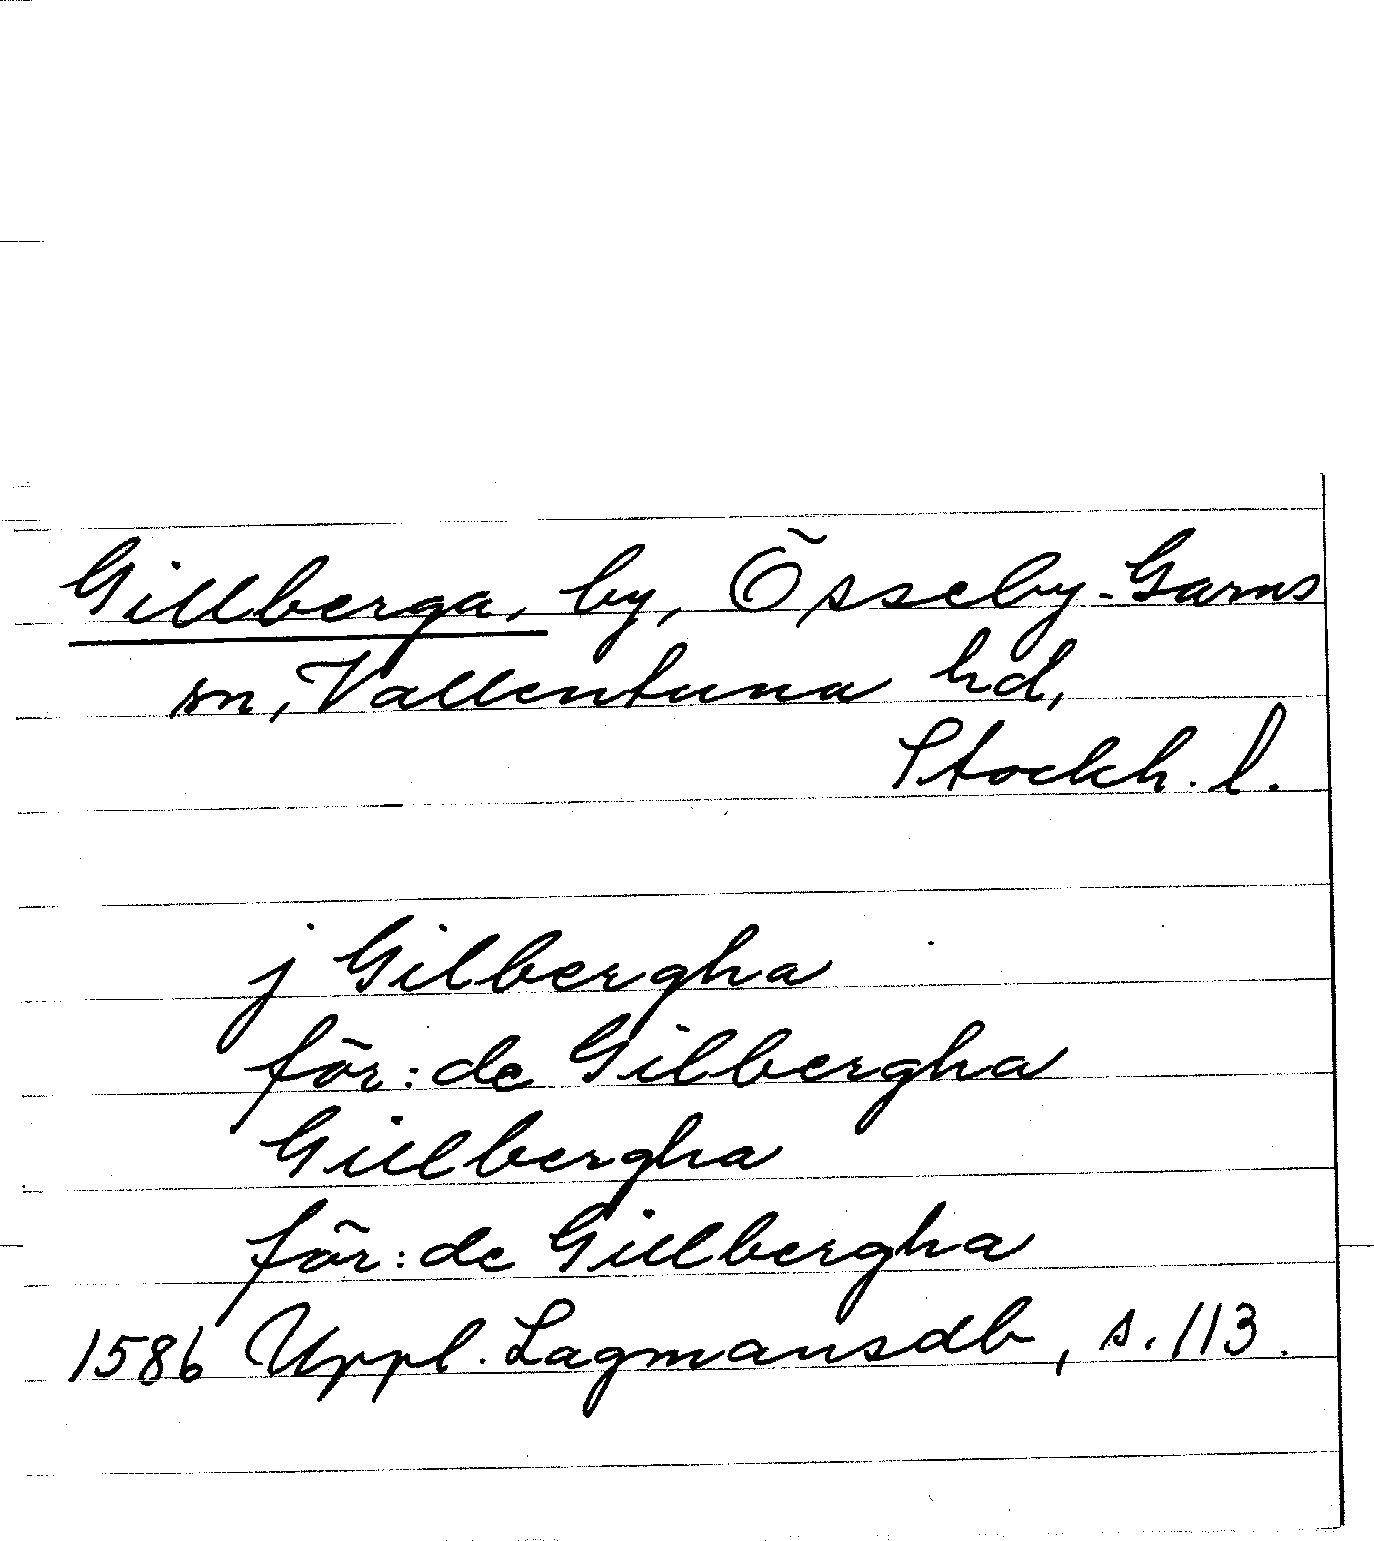 Gillberga, by, Össeby-Garns
sn, Vallentuna hd,
Stockh. l.
j Gilbergha
för: de Gilbergha
Gillbergha
för: de Gillbergha
1586 Uppl. Lagmansdb, s. 113.